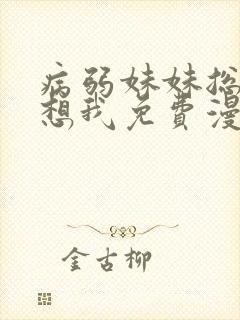 病弱妹妹总
想我免費漫
金古柳